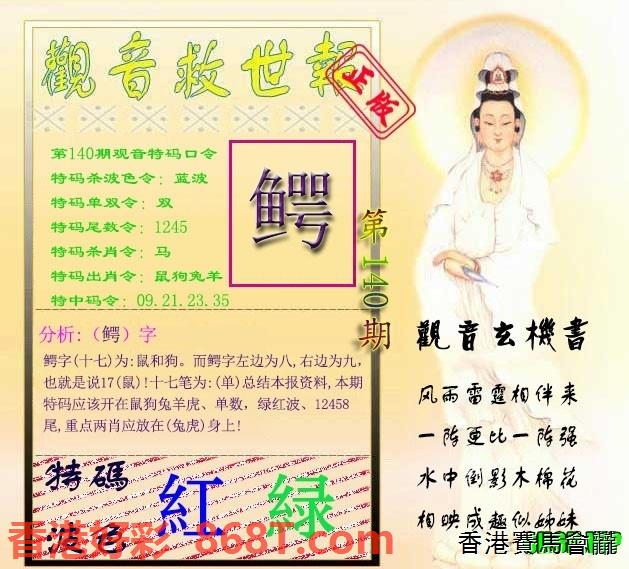 觀音救世報
正版
第140期观音特码口令
特码杀波色令：蓝波
特码单双令：双
特码尾数令：1245
特码杀肖令：马
特码出肖令：鼠狗兔羊
特中码令：09.21.23.35
鳄
第140期
分析:（鳄）字
鳄字(十七)为:鼠和狗。而鳄字左边为八,右边为九,
也就是说17(鼠)!十七笔为:(单)总结本报资料,本期
特码应该开在鼠狗兔羊虎、单数，绿红波、12458
尾,重点两肖应放在(兔虎)身上!
特碼
波色
紅 綠
觀音玄機書
风雨雷霆相伴来
一阵更比一阵强
水中倒影木棉花
相映成趣似姊妹
香港好彩-868T.com
香港賽馬會